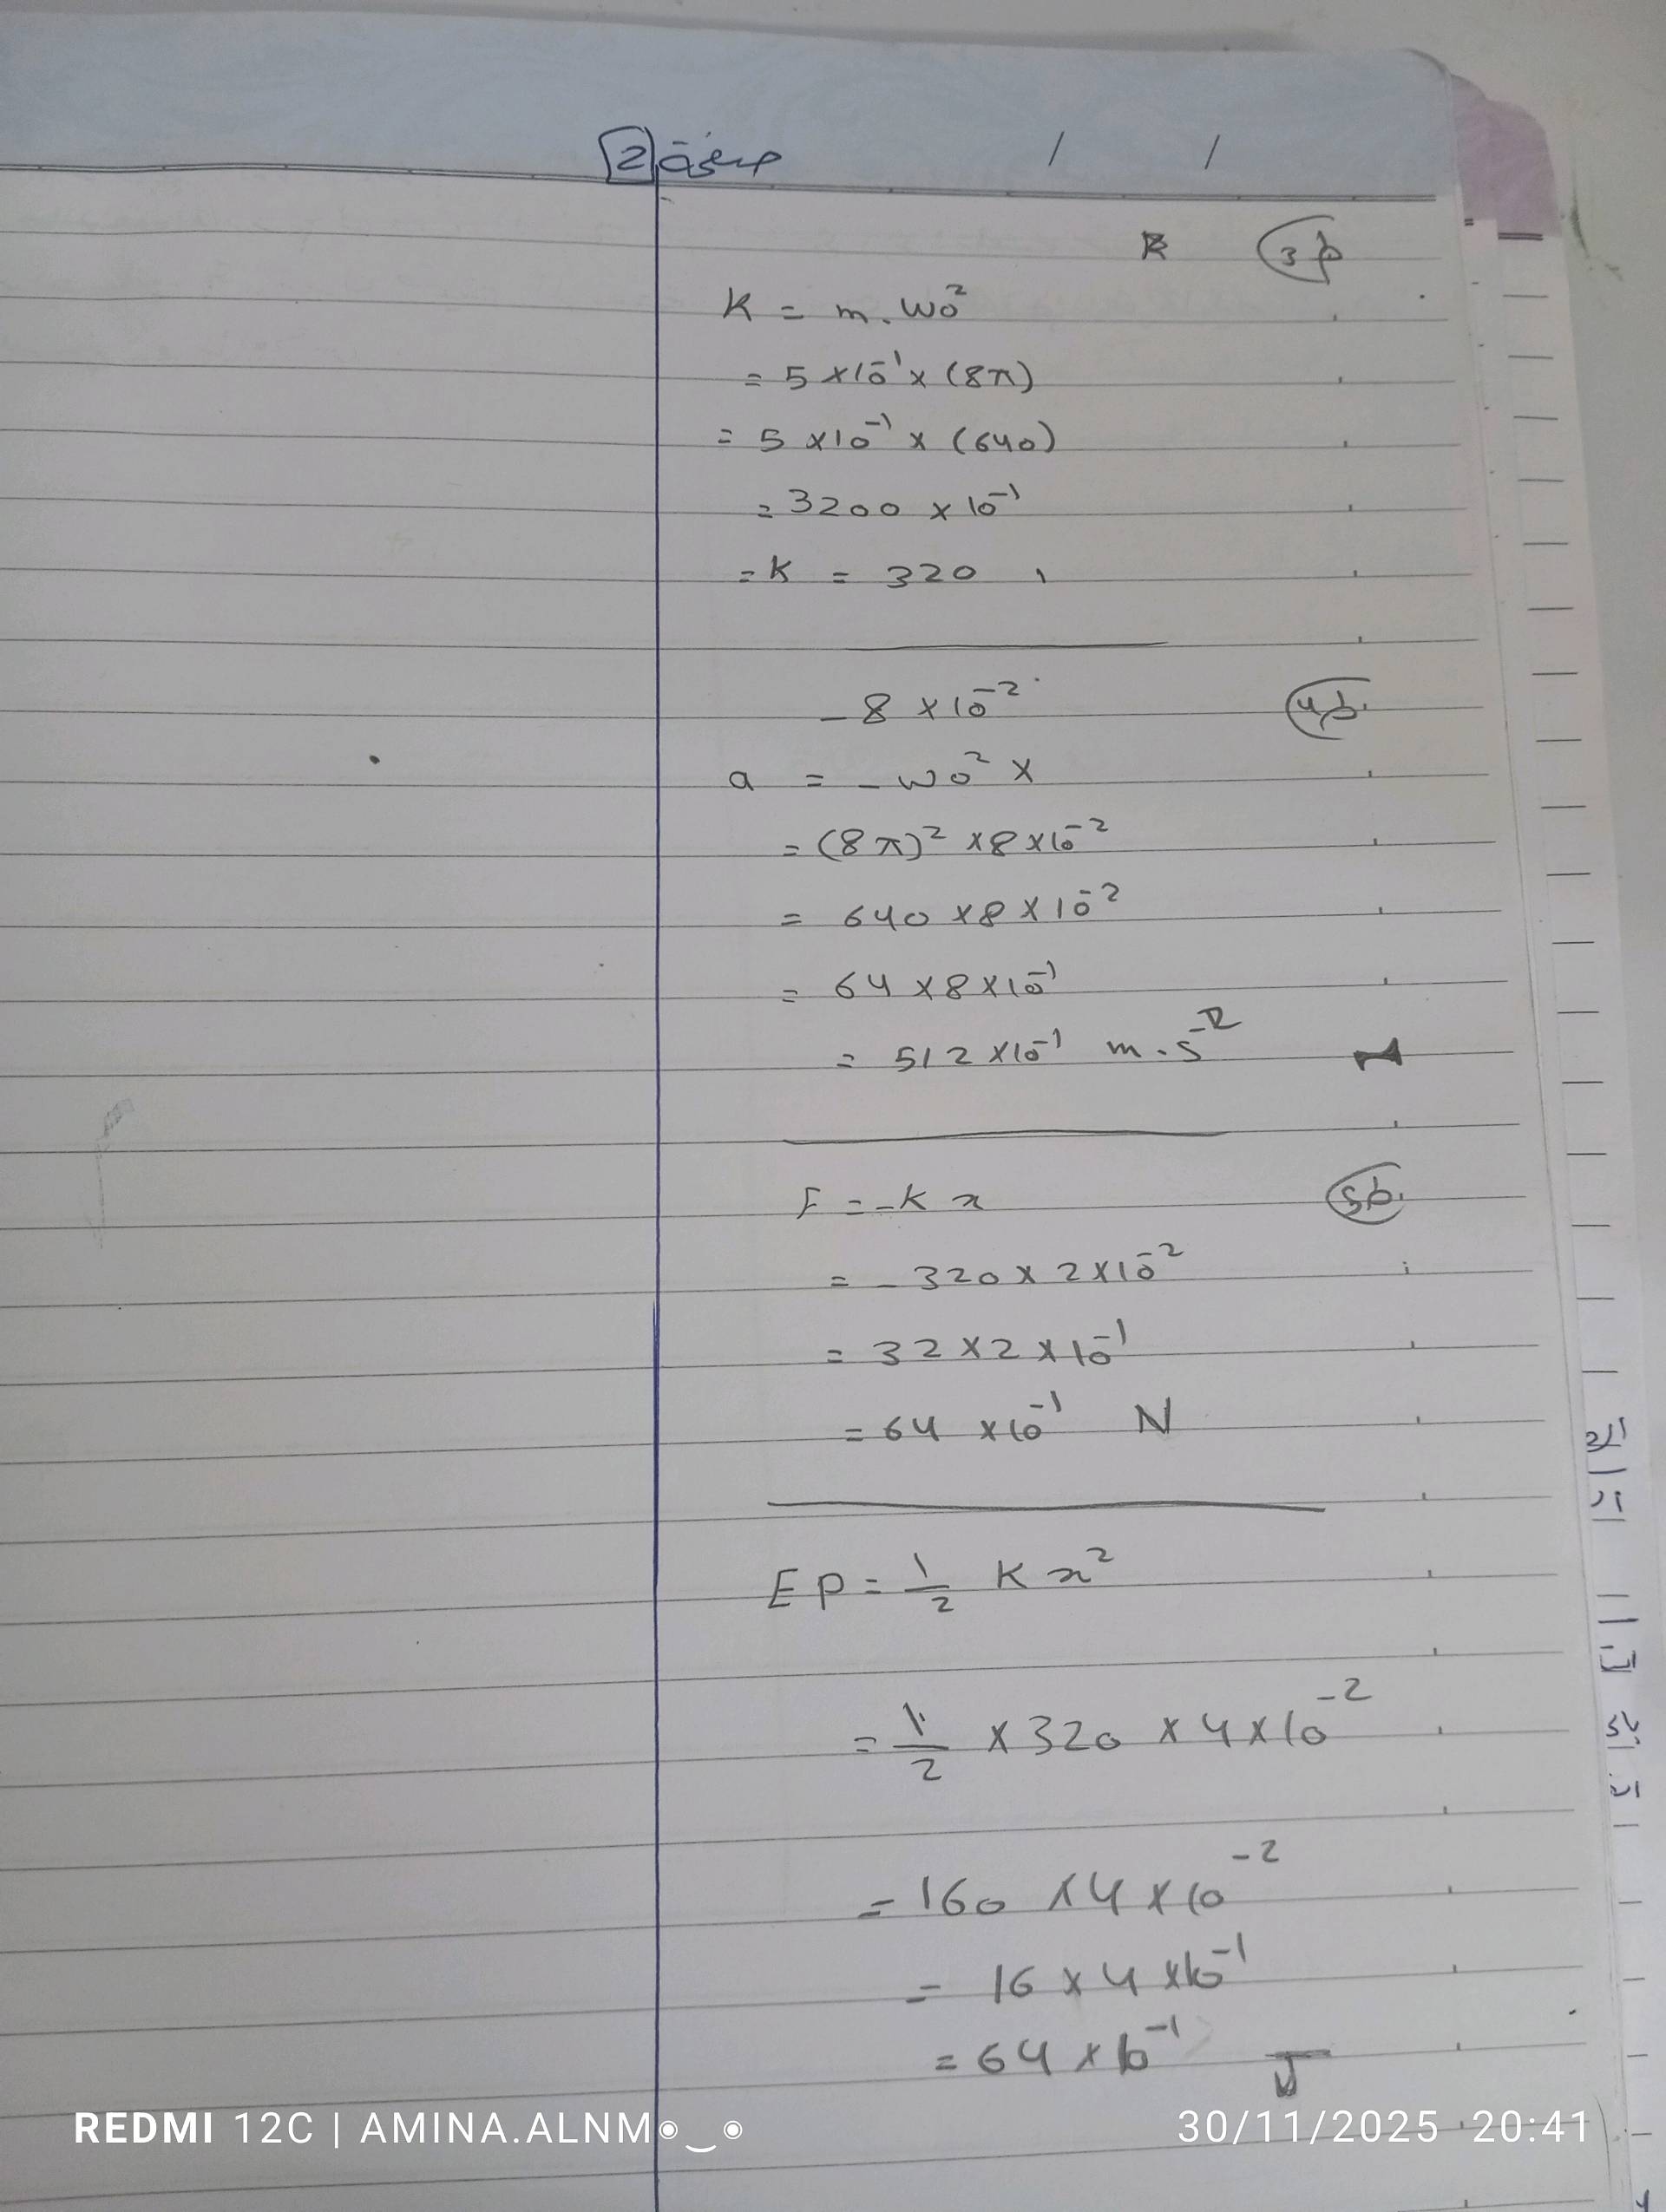 2
/ /
3
K = m. W0²
= 5 × 10⁻¹ × (8π)
= 5 × 10⁻¹ × (640)
= 3200 × 10⁻¹
= K = 320
- 8 × 10⁻²
4
a = - w0² x
= (8π)² × 8 × 10⁻²
= 640 × 8 × 10⁻²
= 64 × 8 × 10⁻¹
= 512 × 10⁻¹ m . s⁻²
F = - K x
5
= - 320 × 2 × 10⁻²
= 32 × 2 × 10⁻¹
= 64 × 10⁻¹ N
EP = 1/2 K x²
= 1/2 × 320 × 4 × 10⁻²
= 160 × 4 × 10⁻²
= 16 × 4 × 10⁻¹
= 64 × 10⁻¹ J
REDMI 12C | AMINA.ALNM◉‿◉
30/11/2025 20:41